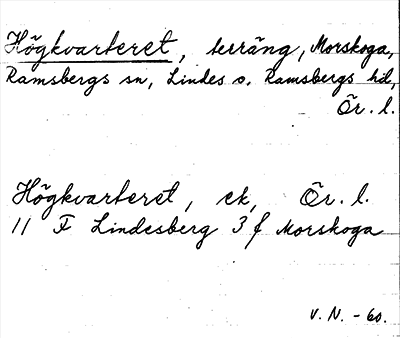 Högkvarteret, terräng, Morskoga,
Ramsbergs sn, Lindes o. Ramsbergs hd,
Ör. l.
Högkvarteret, ek, Ör. l.
11 F Lindesberg 3 f Morskoga
V. N. - 60.